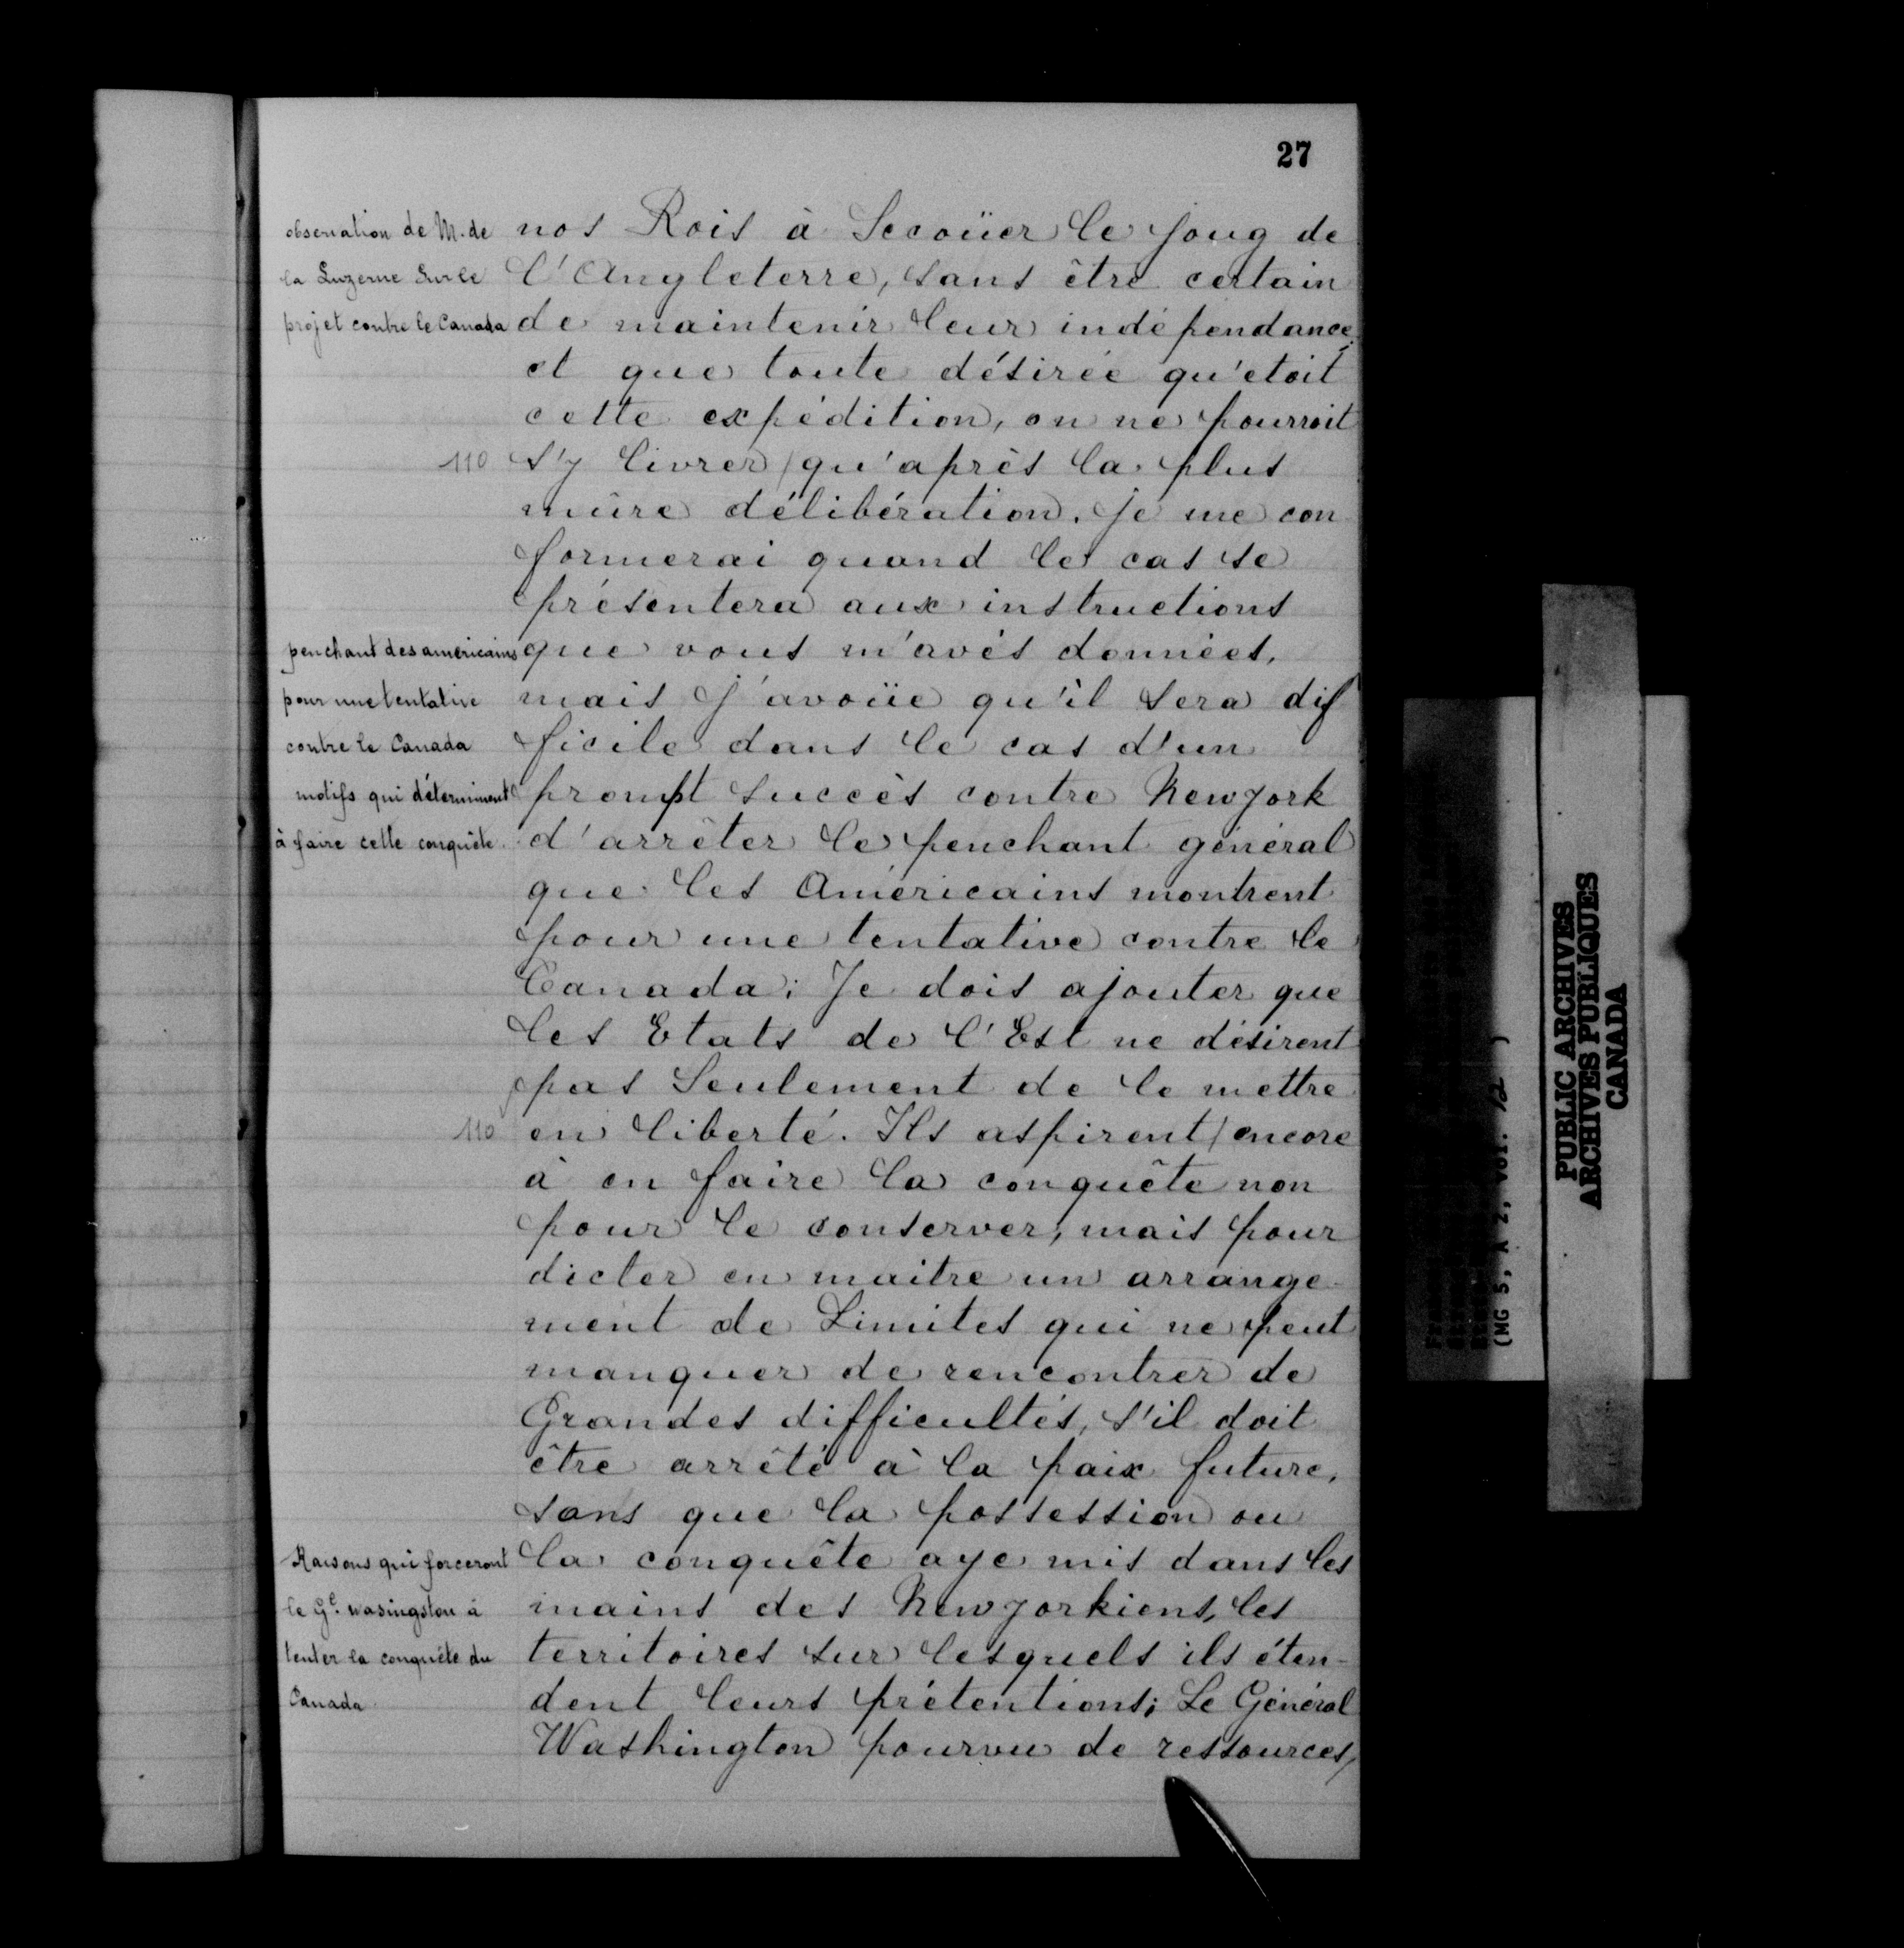 27
observation de M. de
la Luzerne Sur le
projet contre le Canada
nos Rois à Secoüer le joug de
l'Angleterre, sans être certain
de maintenir leur indépendance,
et que toute désirée qu'etoit
cette expédition, on ne pourroit
110 s'y livrer / qu'après la plus
mûre délibération. je me con
formerai quand le cas se
présentera aux instructions
que vous m'avés données,
penchant des américains
pour une tentative
contre le Canada
motifs qui déterminent
à faire cette conquête.
mais j'avoüe qu'il sera dif
ficile dans le cas d'un
prompt succès contre Newyork
d'arrêter le penchant général
que les Américains montrent
pour une tentative contre le
Canada; Je dois ajouter que
les Etats de l'Est ne désirent
pas Seulement de le mettre
110 en liberté. Ils aspirent / encore
à en faire la conquête non
pour le conserver, mais pour
dicter en maitre un arrange-
ment de Limites qui ne peut
manquer de rencontrer de
Grandes difficultés, s'il doit
être arrêté à la paix future,
sans que la possession ou
Raisons qui forceront
le Gl. wasingston à
tenter la conquête du
Canada
la conquête aye mis dans les
mains des Newyorkiens, les
territoires sur lesquels ils éten-
dent leurs prétentions; Le Général
Washington pourvu de ressources,
(MG 5, A 2, vol. 12 )
PUBLIC ARCHIVES
ARCHIVES PUBLIQUES
CANADA